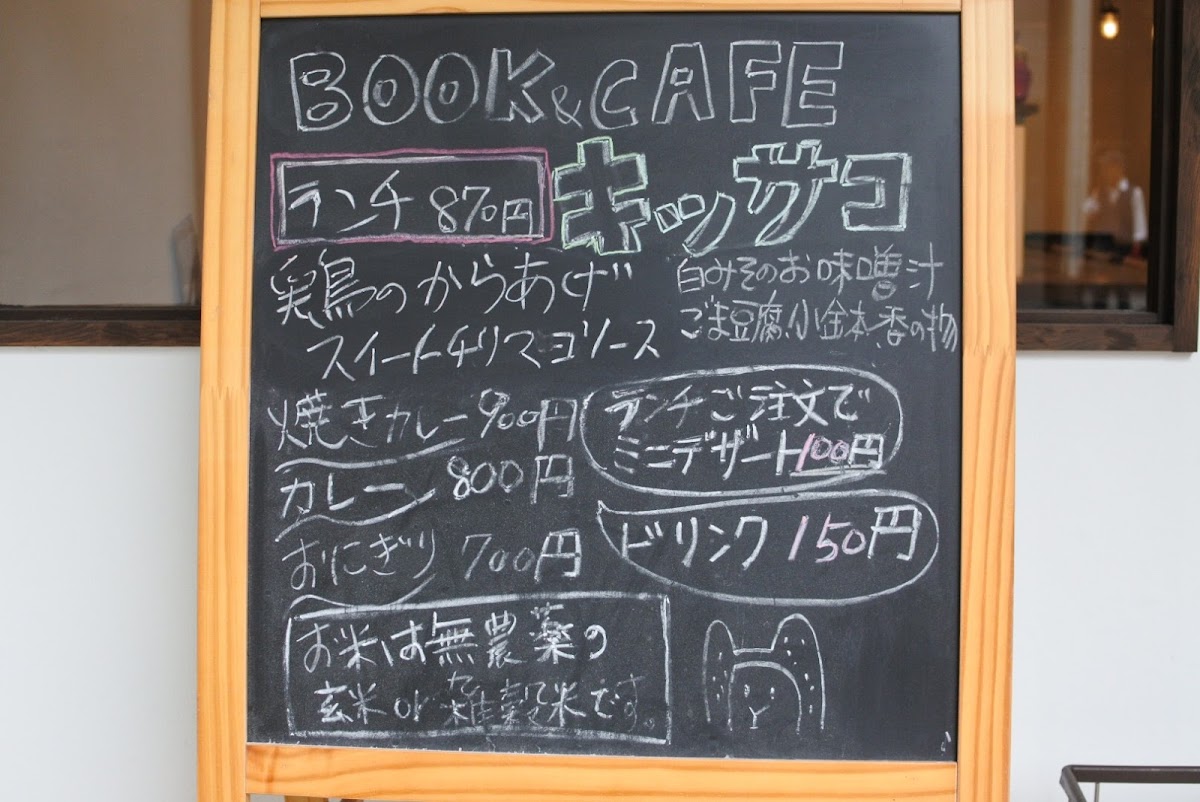 BOOK&CAFE
キッサコ
ランチ 870円
鶏のからあげ
スイートチリマヨソース
白みそのお味噌汁
ごま豆腐、小鉢、香の物
焼きカレー 900円
カレー 800円
おにぎり 700円
ランチご注文で
ミニデザート100円
ドリンク 150円
お米は無農薬の
玄米 or 雑穀米です。